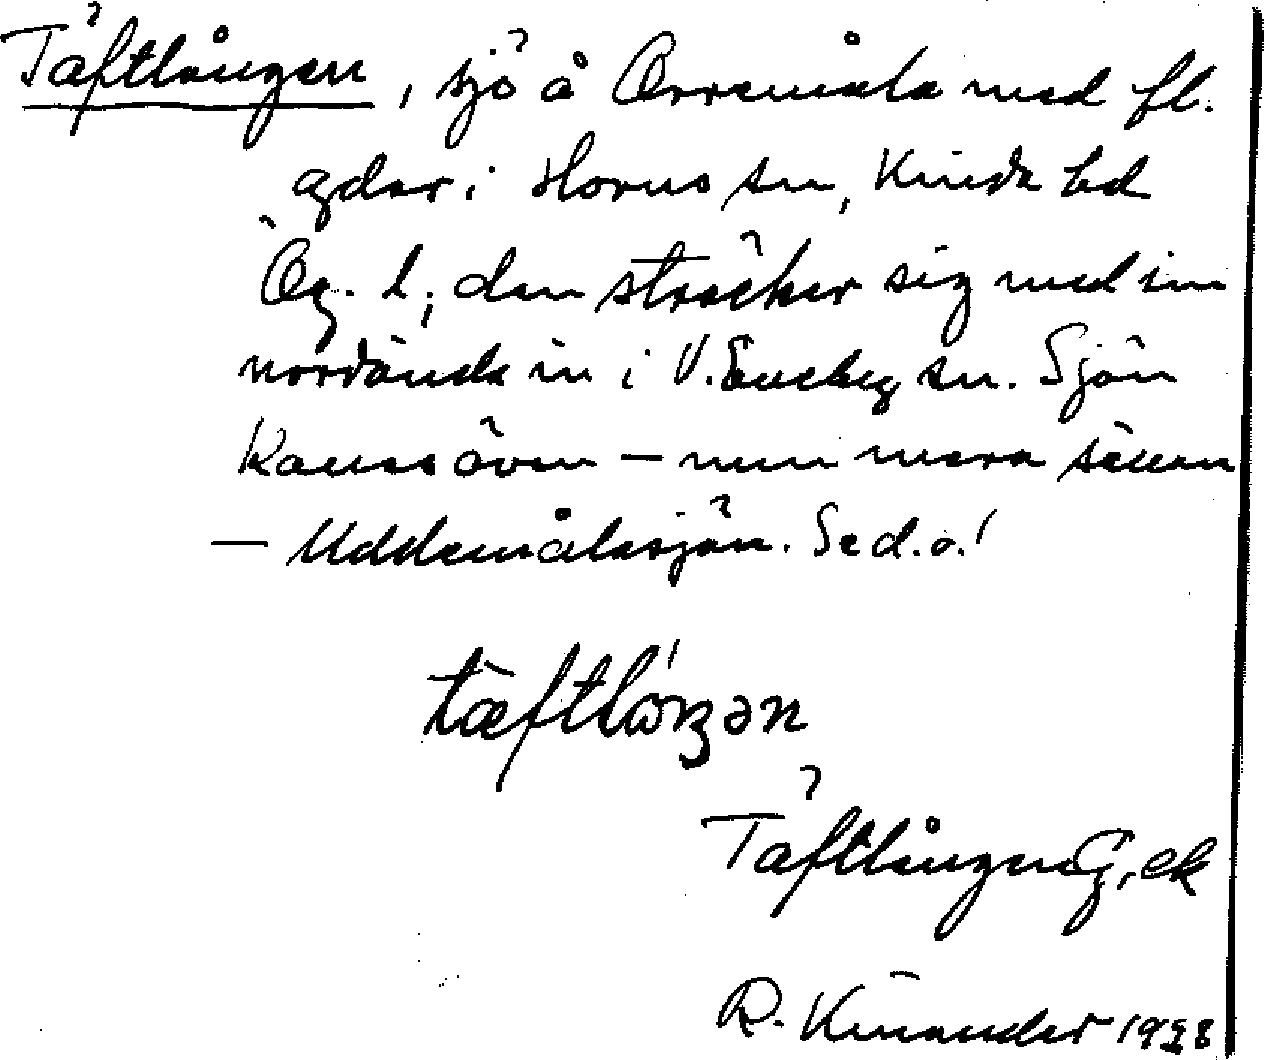 Täftlången, sjö å Orremåla med fl.
gdar i Horns sn, Kinda hd
Ög. l; den sträcker sig med sin
nordända in i V. Eneby sn. Sjön
kallas även — num mera sällan
— Uddemålasjön. Se d. o.!
tæftlåŋən
Täftlången G, ek
R. Kinander 1928